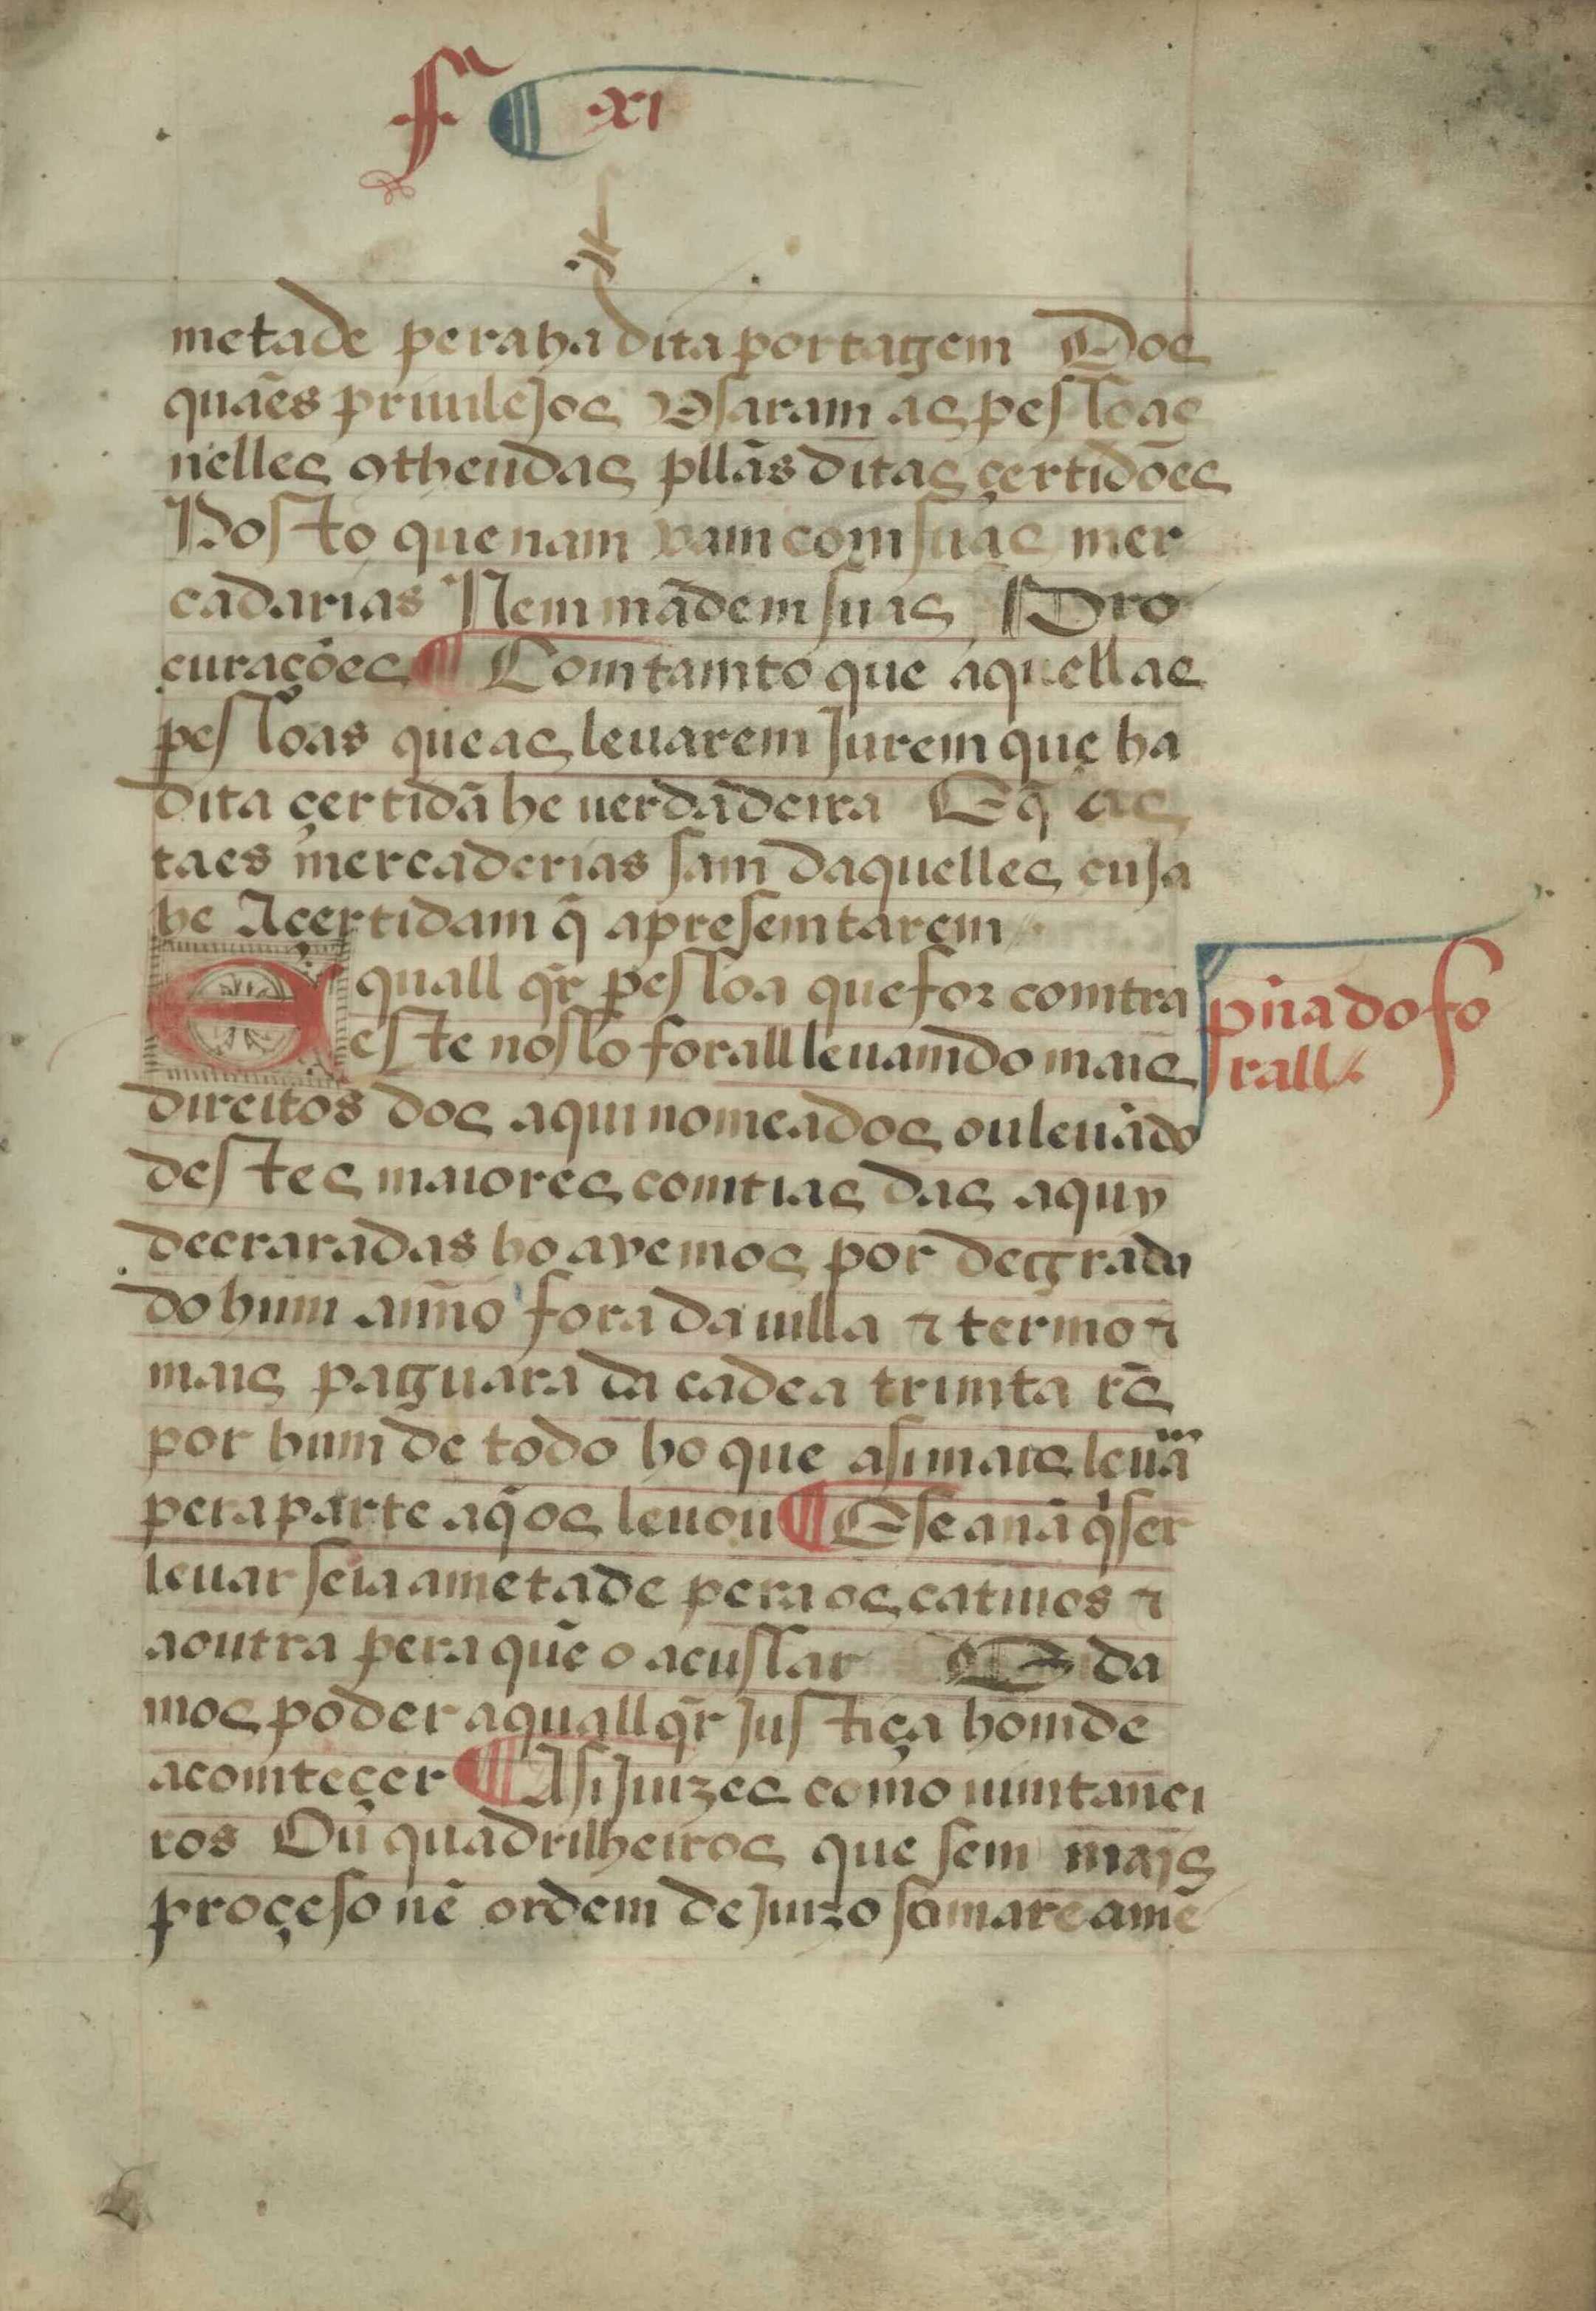 f ¶ xi
metade pera ha dita portagem Dos
quaẽs priuilejos Vsaram as pessoas
nelles ꝯtheudas pllãs ditas çertidões
Posto que nam vam com suas mer
cadarias Nem mãdem suas Pro
curações ¶ Comtamto que aquellas
pessoas que as leuarem Jurem que ha
dita çertidã he uerdadeira E q̃ as
taes mercaderias sam daquelles cuja
he A çertidam q̃ apresemtarem
E quall q̃r pessoa que for comtra
este nosso forall leuamdo mais
pña do fo
rall
direitos dos aqui nomeados ou leuãdo
destes maiores comtias das aquy
decraradas ho avemos por degrada
do hum anño fora da uilla ⁊ termo ⁊
mais paguara da cadea trimta rẽs
por hum de todo ho que asi mais leuã
pera parte aq̃ os leuou ¶ E se a nã q̃ser
leuar seia ametade pera os catiuos ⁊
a outra pera quẽ o acussar E da
mos poder a quall q̃r Justiça homde
acomteçer ¶ Asi Juizes como uimtanei
ros Ou quadrilheiros que sem mais
proçeso nẽ ordem de Juizo sumareamẽ